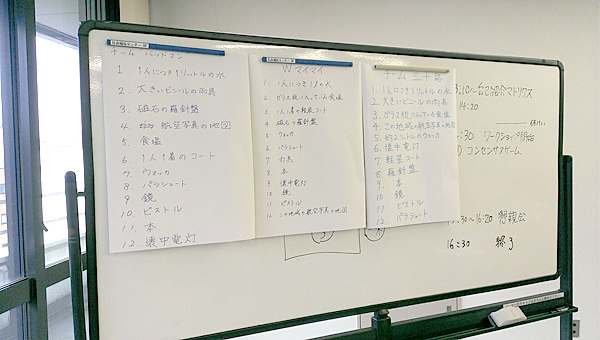 チーム バットマン
1. 1人につき1リットルの水
2. 大きいビニールの雨具
3. 磁石の羅針盤
4. 航空写真の地図
5. 食塩
6. 1人1着のコート
7. ウォッカ
8. パラシュート
9. 鏡
10. ピストル
11. 本
12. 懐中電灯
Wマイマイ
1. 1人につき1ℓの水
2. ガラス瓶に入っている食塩
3. 1人1着の軽装コート
4. 磁石の羅針盤
5. ウォッカ
6. パラシュート
7. 雨具
8. 本
9. 懐中電灯
10. 鏡
11. ピストル
12. この地域の航空写真の地図
チーム 三十路
1. 1人につき1リットルの水
2. 大きいビニールの雨具
3. ガラス瓶に入っている食塩
4. この地域の航空写真の地図
5. 約2リットルのウォッカ
6. 懐中電灯
7. 軽装コート
8. 羅針盤
9. 本
10. 鏡
11. ピストル
12. パラシュート
:10~自己紹介マトリクス
14:20
:30 ワークショップ開始
コンセンサスゲーム
:30~16:20 懇親会
16:30 終了